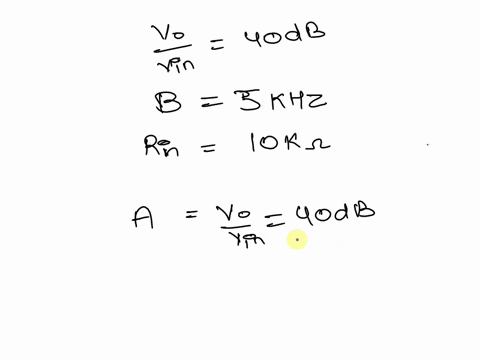 Vo/Vin = 40dB
B = 5KHZ
Rin = 10KΩ
A = Vo/Vin = 40dB